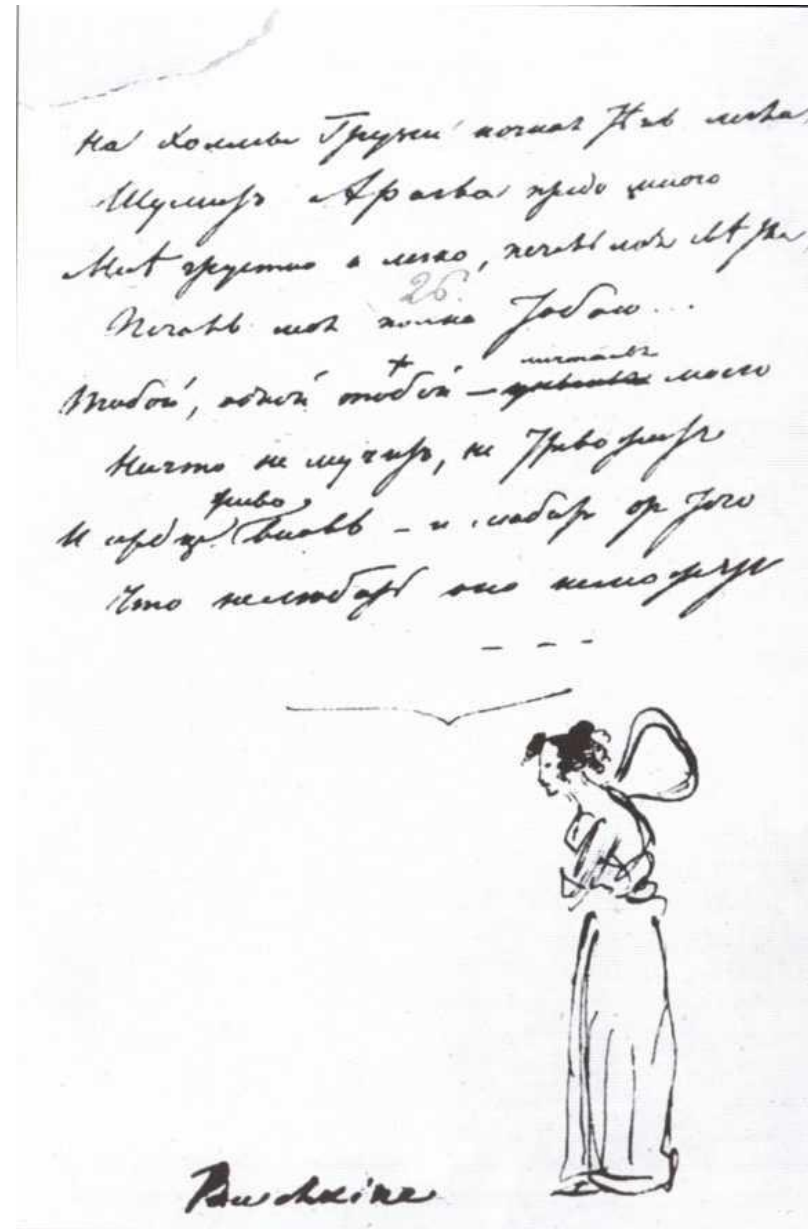 На холмы Грузіи ночная тѣнь легла,
Шумитъ Арагва предо мною
Мнѣ грустно и легко, печаль моя свѣтла,
26.
Печаль моя полна тобою...
Тобой, одной тобой — унынья моего
Ничто не мучитъ, не тревожитъ
живо
И сердце вновь – и любитъ отъ того
Что не любить оно не можетъ
Pouchkine